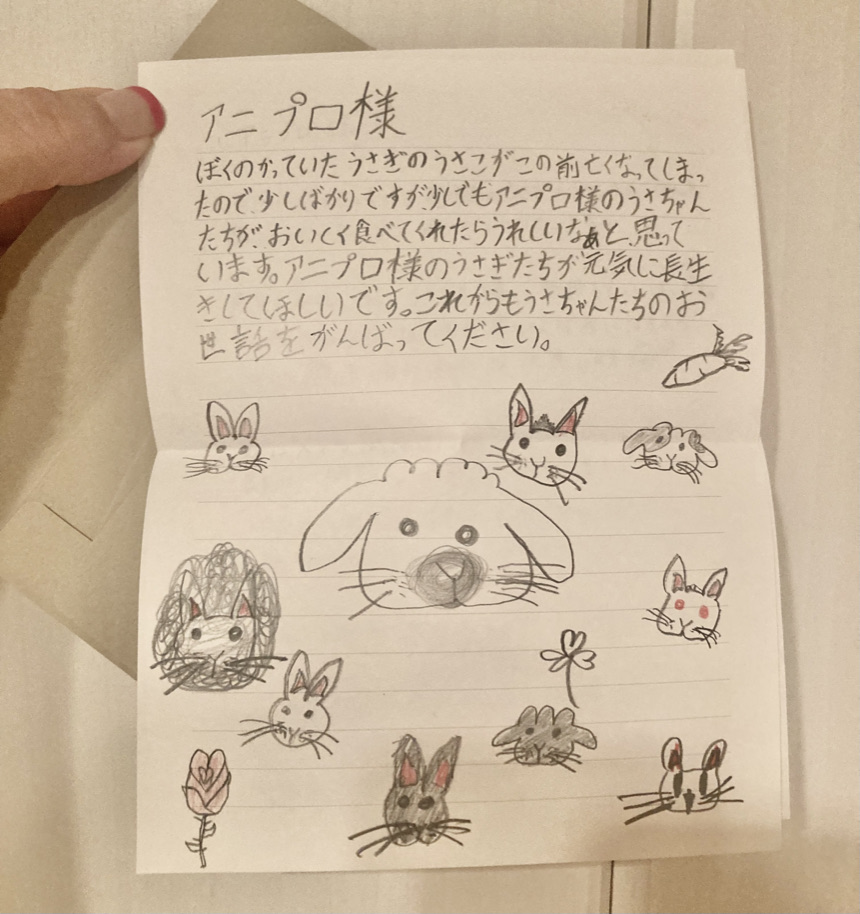 アニプロ様
ぼくのかっていたうさぎのうさこがこの前亡くなってしまっ
たので、少しばかりですが少しでもアニプロ様のうさちゃん
たちが、おいしく食べてくれたらうれしいなぁと、思って
います。アニプロ様のうさぎたちが元気に長生
きしてほしいです。これからもうさちゃんたちのお
世話をがんばってください。